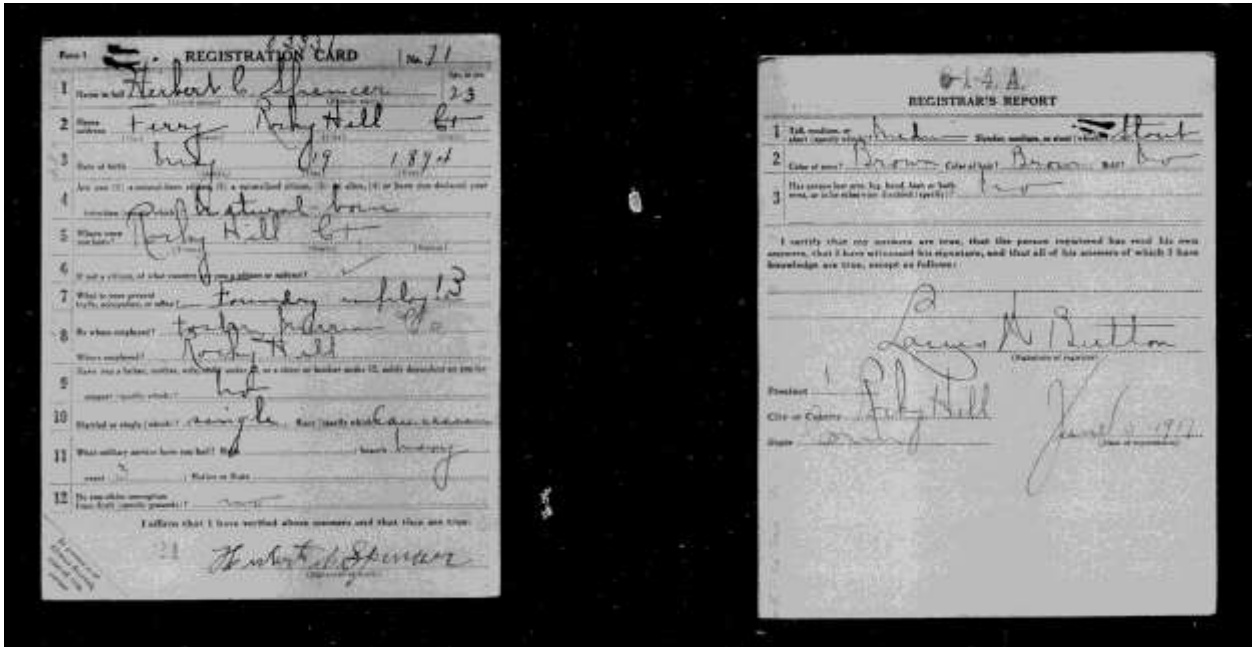 Form 1 REGISTRATION CARD No. 71
1 Name in full Herbert C Spencer Age, in yrs. 23
2 Home address Ferry Rocky Hill Ct
3 Date of birth May 19 1894
4 Are you (1) a natural-born citizen, (2) a naturalized citizen, (3) an alien, (4) or have you declared your
intention (specify which)? Natural born
5 Where were you born? Rocky Hill Ct
6 If not a citizen, of what country are you a citizen or subject?
7 What is your present trade, occupation, or office? Foundry employ 13
8 By whom employed? Co
Where employed? Rocky Hill
9 Have you a father, mother, wife, child under 12, or a sister or brother under 12, solely dependent on you for
support (specify which)? no
10 Married or single (which)? single Race (specify which)? Caucasian
11 What military service have you had? Rank branch Navy
years 3 Nation or State
12 Do you claim exemption from draft (specify grounds)? no
I affirm that I have verified above answers and that they are true.
21 Herbert C Spencer
6-1-4. A.
REGISTRAR'S REPORT
1 Tall, medium, or short (specify which)? Slender, medium, or stout (which)? Stout
2 Color of eyes? Brown Color of hair? Brown Bald? No
3 Has person lost arm, leg, hand, foot, or both eyes, or is he otherwise disabled (specify)? No
I certify that my answers are true, that the person registered has read his own
answers, that I have witnessed his signature, and that all of his answers of which I have
knowledge are true, except as follows:
Button
(Signature of registrar)
Precinct 1
City or County Rocky Hill
State Conn June 5 1917
(Date of registration)